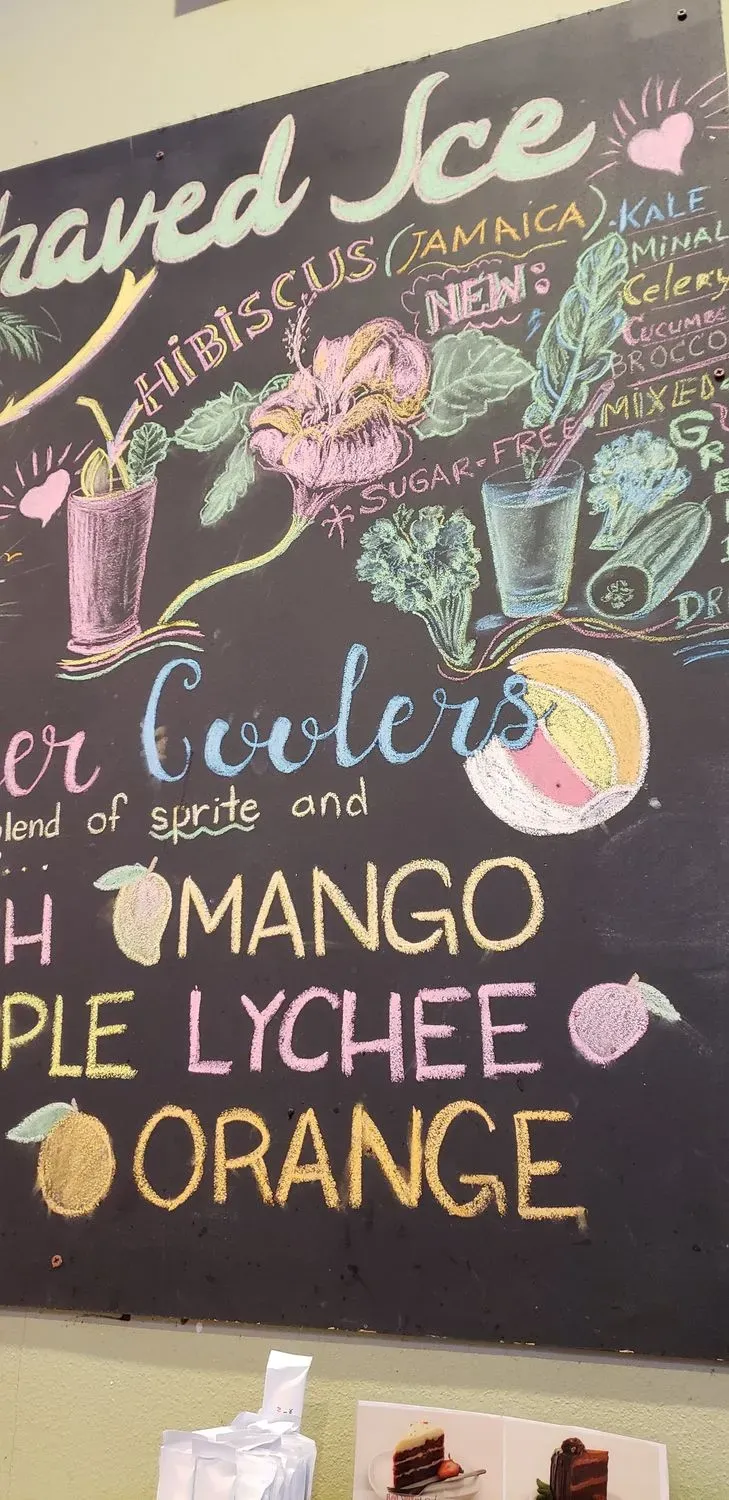 haved Ice
HIBISCUS (JAMAICA)
NEW:
KALE
MINAL
Celery
CUCUMBE
BROCCO
MIXED
GRE
DRI
*SUGAR-FREE
er Coolers
lend of sprite and
...
H MANGO
PLE LYCHEE
ORANGE